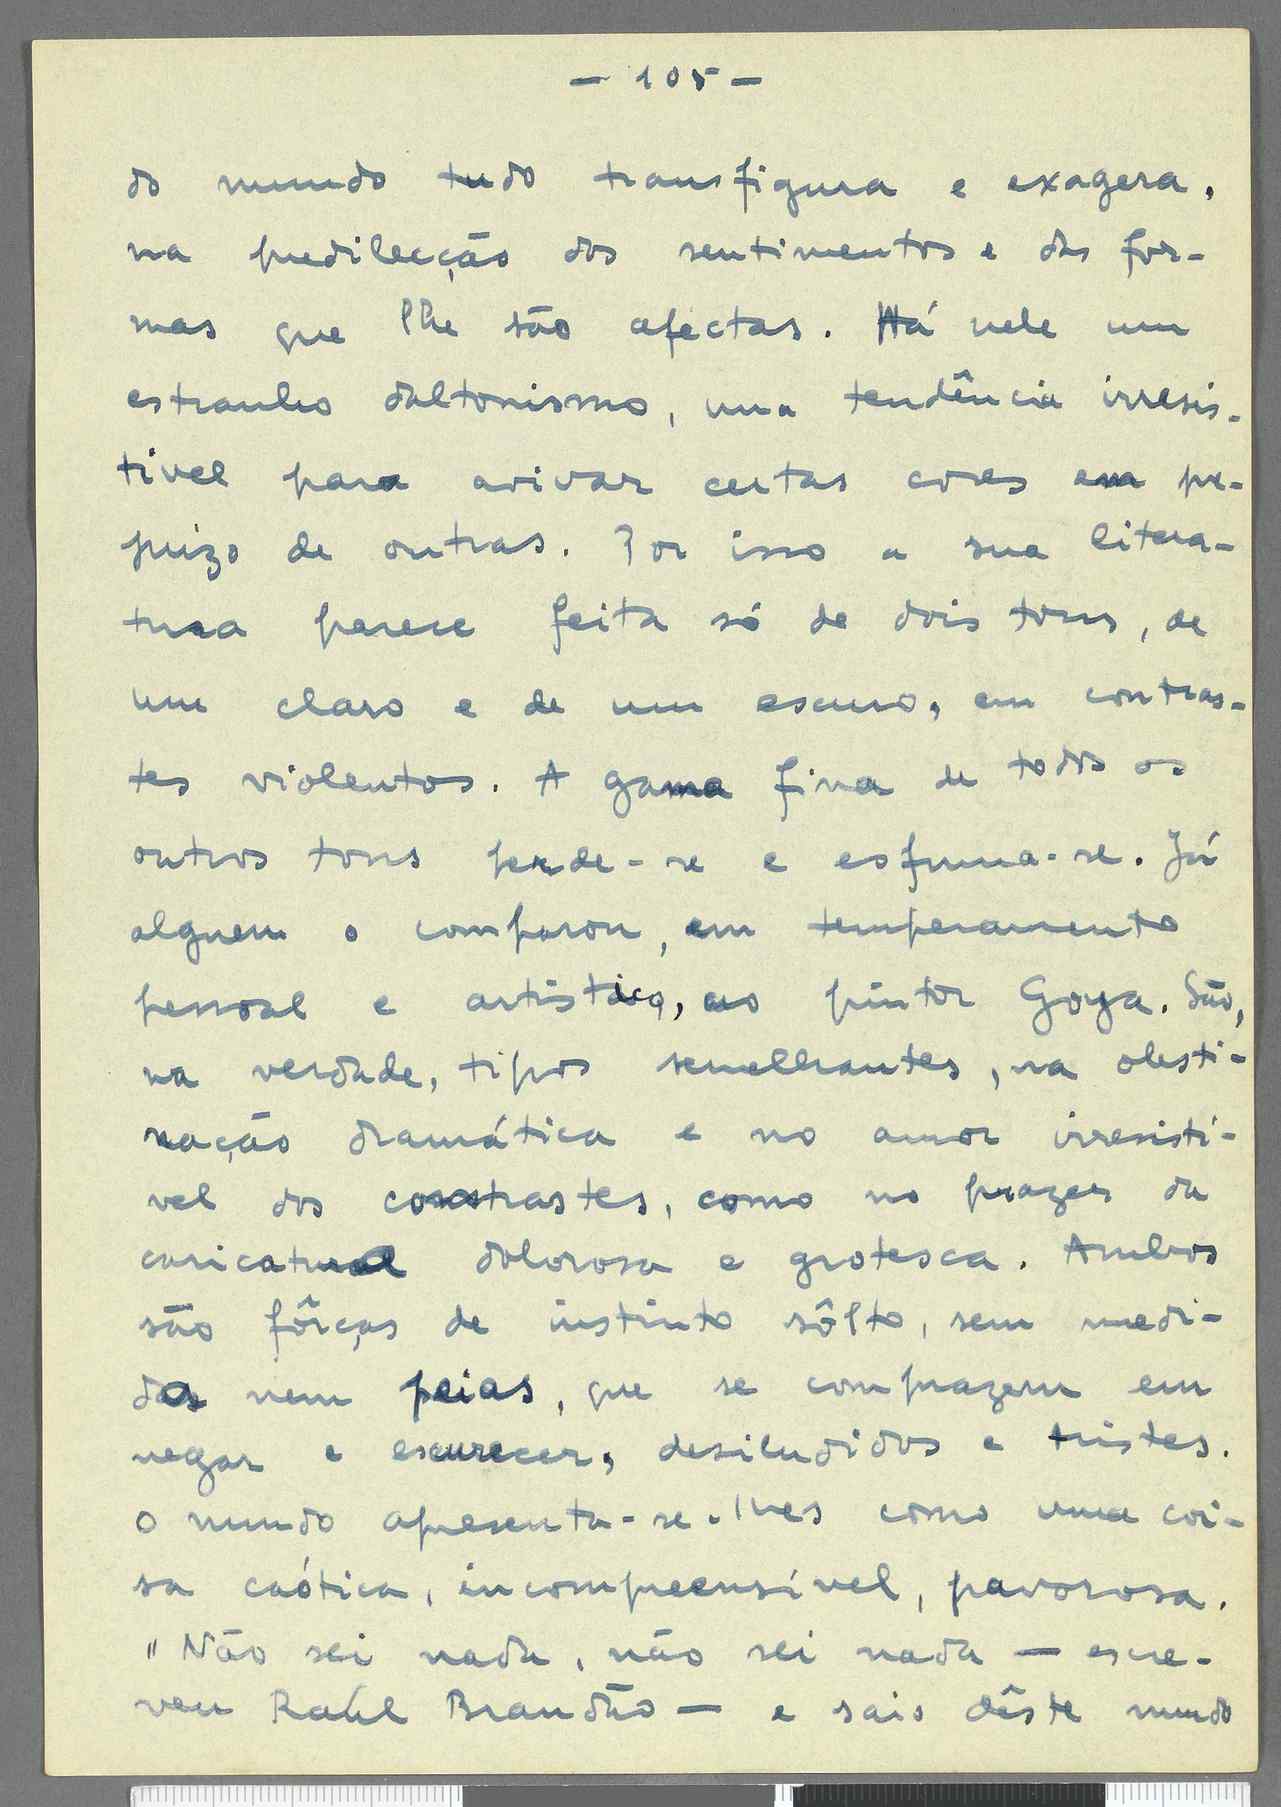 — 105 —
do mundo tudo transfigura e exagera,
na predilecção dos sentimentos e das for-
mas que lhe são afectas. Há nele um
estranho daltonismo, uma tendência irresis-
tivel para avivar certas cores em pre-
juizo de outras. Por isso a sua litera-
tura parece feita só de dois tons, de
um claro e de um escuro, em contras-
tes violentos. A gama fina de todos os
outros tons perde-se e esfuma-se. Já
alguem o comparou, em temperamento
pessoal e artístico, ao pintor Goya. São,
na verdade, tipos semelhantes, na obsti-
nação dramática e no amor irresisti-
vel dos contrastes, como no prazer da
caricatural dolorosa e grotesca. Ambos
são fôrças de instinto sôlto, sem medi-
das nem peias, que se comprazem em
negar e escurecer, desiludidos e tristes.
O mundo apresenta-se-lhes como uma coi-
sa caótica, incompreensível, pavorosa.
"Não sei nada, não sei nada — escre-
veu Raúl Brandão — e saio dêste mundo